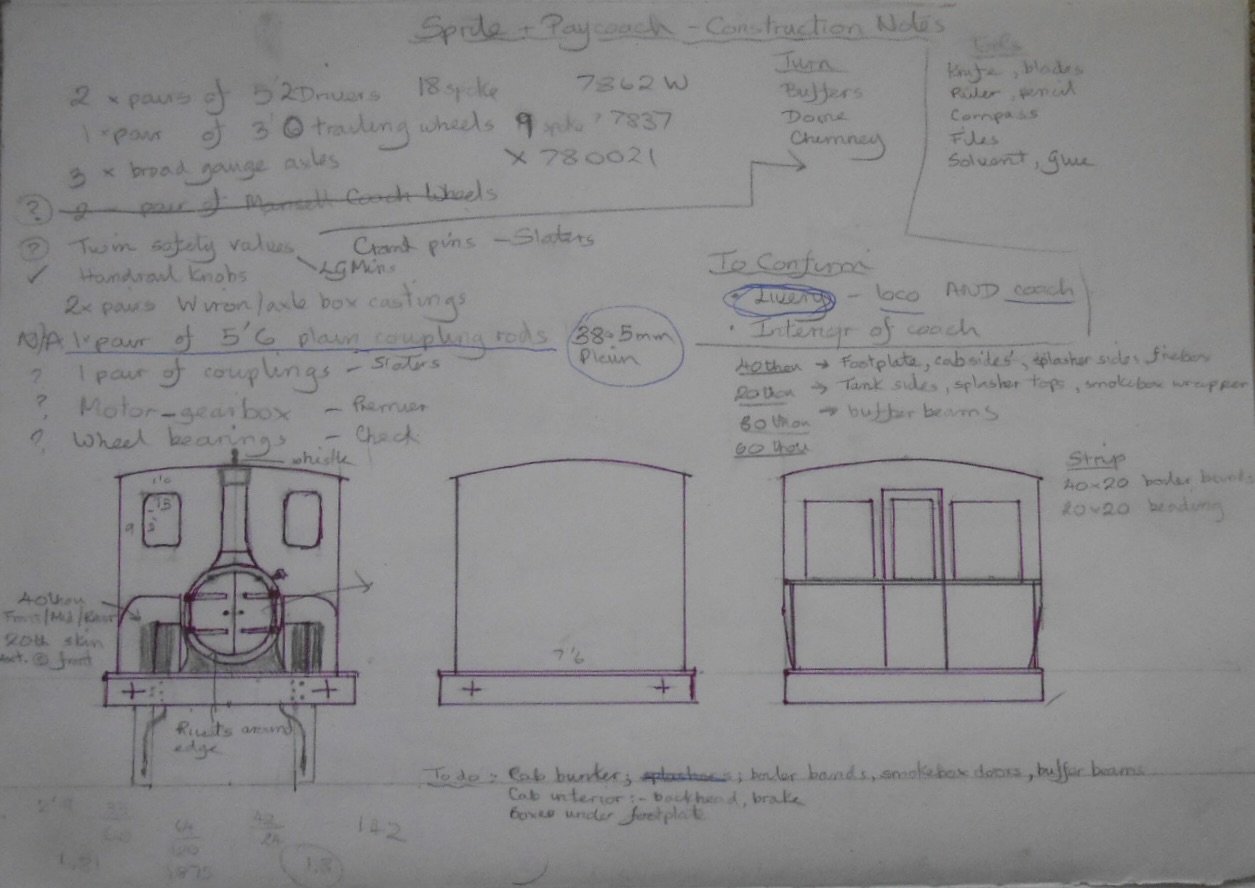 Sprite + Paycoach - Construction Notes
2 x pairs of 5'2 Drivers 18 spoke 7862W
1 x pair of 3'0 trailing wheels 9 spoke 7837
3 x broad gauge axles X 780021
? 2 - pair of Mansell Coach Wheels
? Twin safety valves
LG Mins
Crank pins - Slaters
✓ Handrail Knobs
2x pairs W iron/axle box castings
N/A 1 x pair of 5'6 plain coupling rods
38.5mm
Plain
? 1 pair of couplings - Slaters
? Motor-gearbox - Premier
? Wheel bearings - Check
Turn
Buffers
Dome
Chimney
Tools
Knife, blades
Ruler, pencil
Compass
Files
Solvent, glue
To Confirm
• Livery - loco AND coach
• Interior of coach
40thou → Footplate, cab sides, splasher sides, firebox
20thou → Tank sides, splasher tops, smokebox wrapper
80thou → buffer beams
60thou
Strip
40x20 boiler bands
20x20 beading
whistle
1'0
9
40thou
Front/Mid/Rear
20th skin
@ front
Rivets around
edge
7'6
To do: Cab bunker; splashers; boiler bands, smokebox doors, buffer beams
Cab interior:- backhead, brake
Boxes under footplate
142
1.8